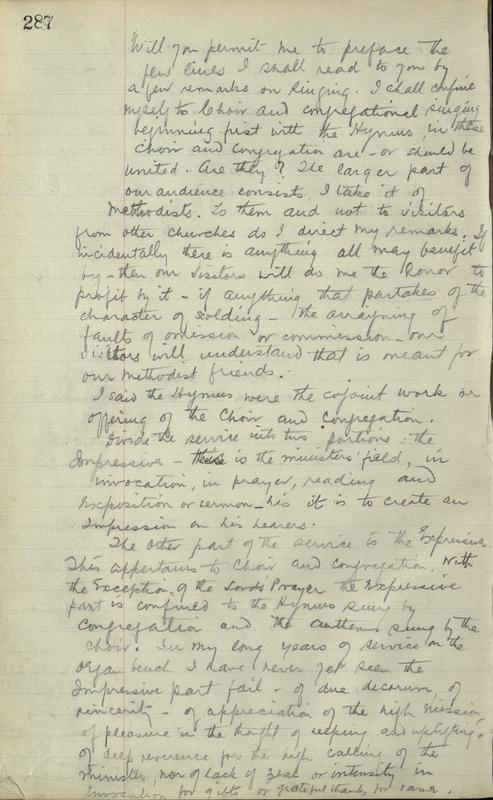 287
Will you permit me to preface the
few lines I shall read to you by
a few remarks on Singing. I shall confine
myself to Choir and congregational singing
beginning first with the Hymns in these
choir and congregation are - or should be
united. Are they? The larger part of
our audience consists I take it of
Methodists. To them and not to visitors
from other churches do I direct my remarks. If
incidentally there is anything all may benefit
by - then our visitors will do me the honor to
profit by it - if anything that partakes of the
character of scolding - the arraigning of
faults of omission or commission - our
visitors will understand that is meant for
our Methodist friends.
I said the Hymns were the cojoint work or
offering of the Choir and congregation.
Divide the service into two portions: the
Impressive - this is the ministers' field, in
invocation, in prayer, reading and
exposition or sermon - his it is to create an
Impression on his hearers.
The other part of the service is the Expressive
This appertains to Choir and congregation. With
the Exception of the Lords Prayer the Expressive
part is confined to the Hymns sung by
congregation and the anthems sung by the
choir. In my long years of service on the
organ bench I have never yet seen the
Impressive part fail - of due decorum, of
sincerity - of appreciation of the high mission,
of pleasure in the thought of helping and uplifting,
of deep reverence for the high calling of the
minister nor of lack of zeal or intensity in
invocation for gifts or grateful thanks for same.